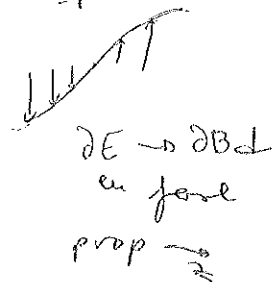 ∂E → ∂Bd
en fase
prop →